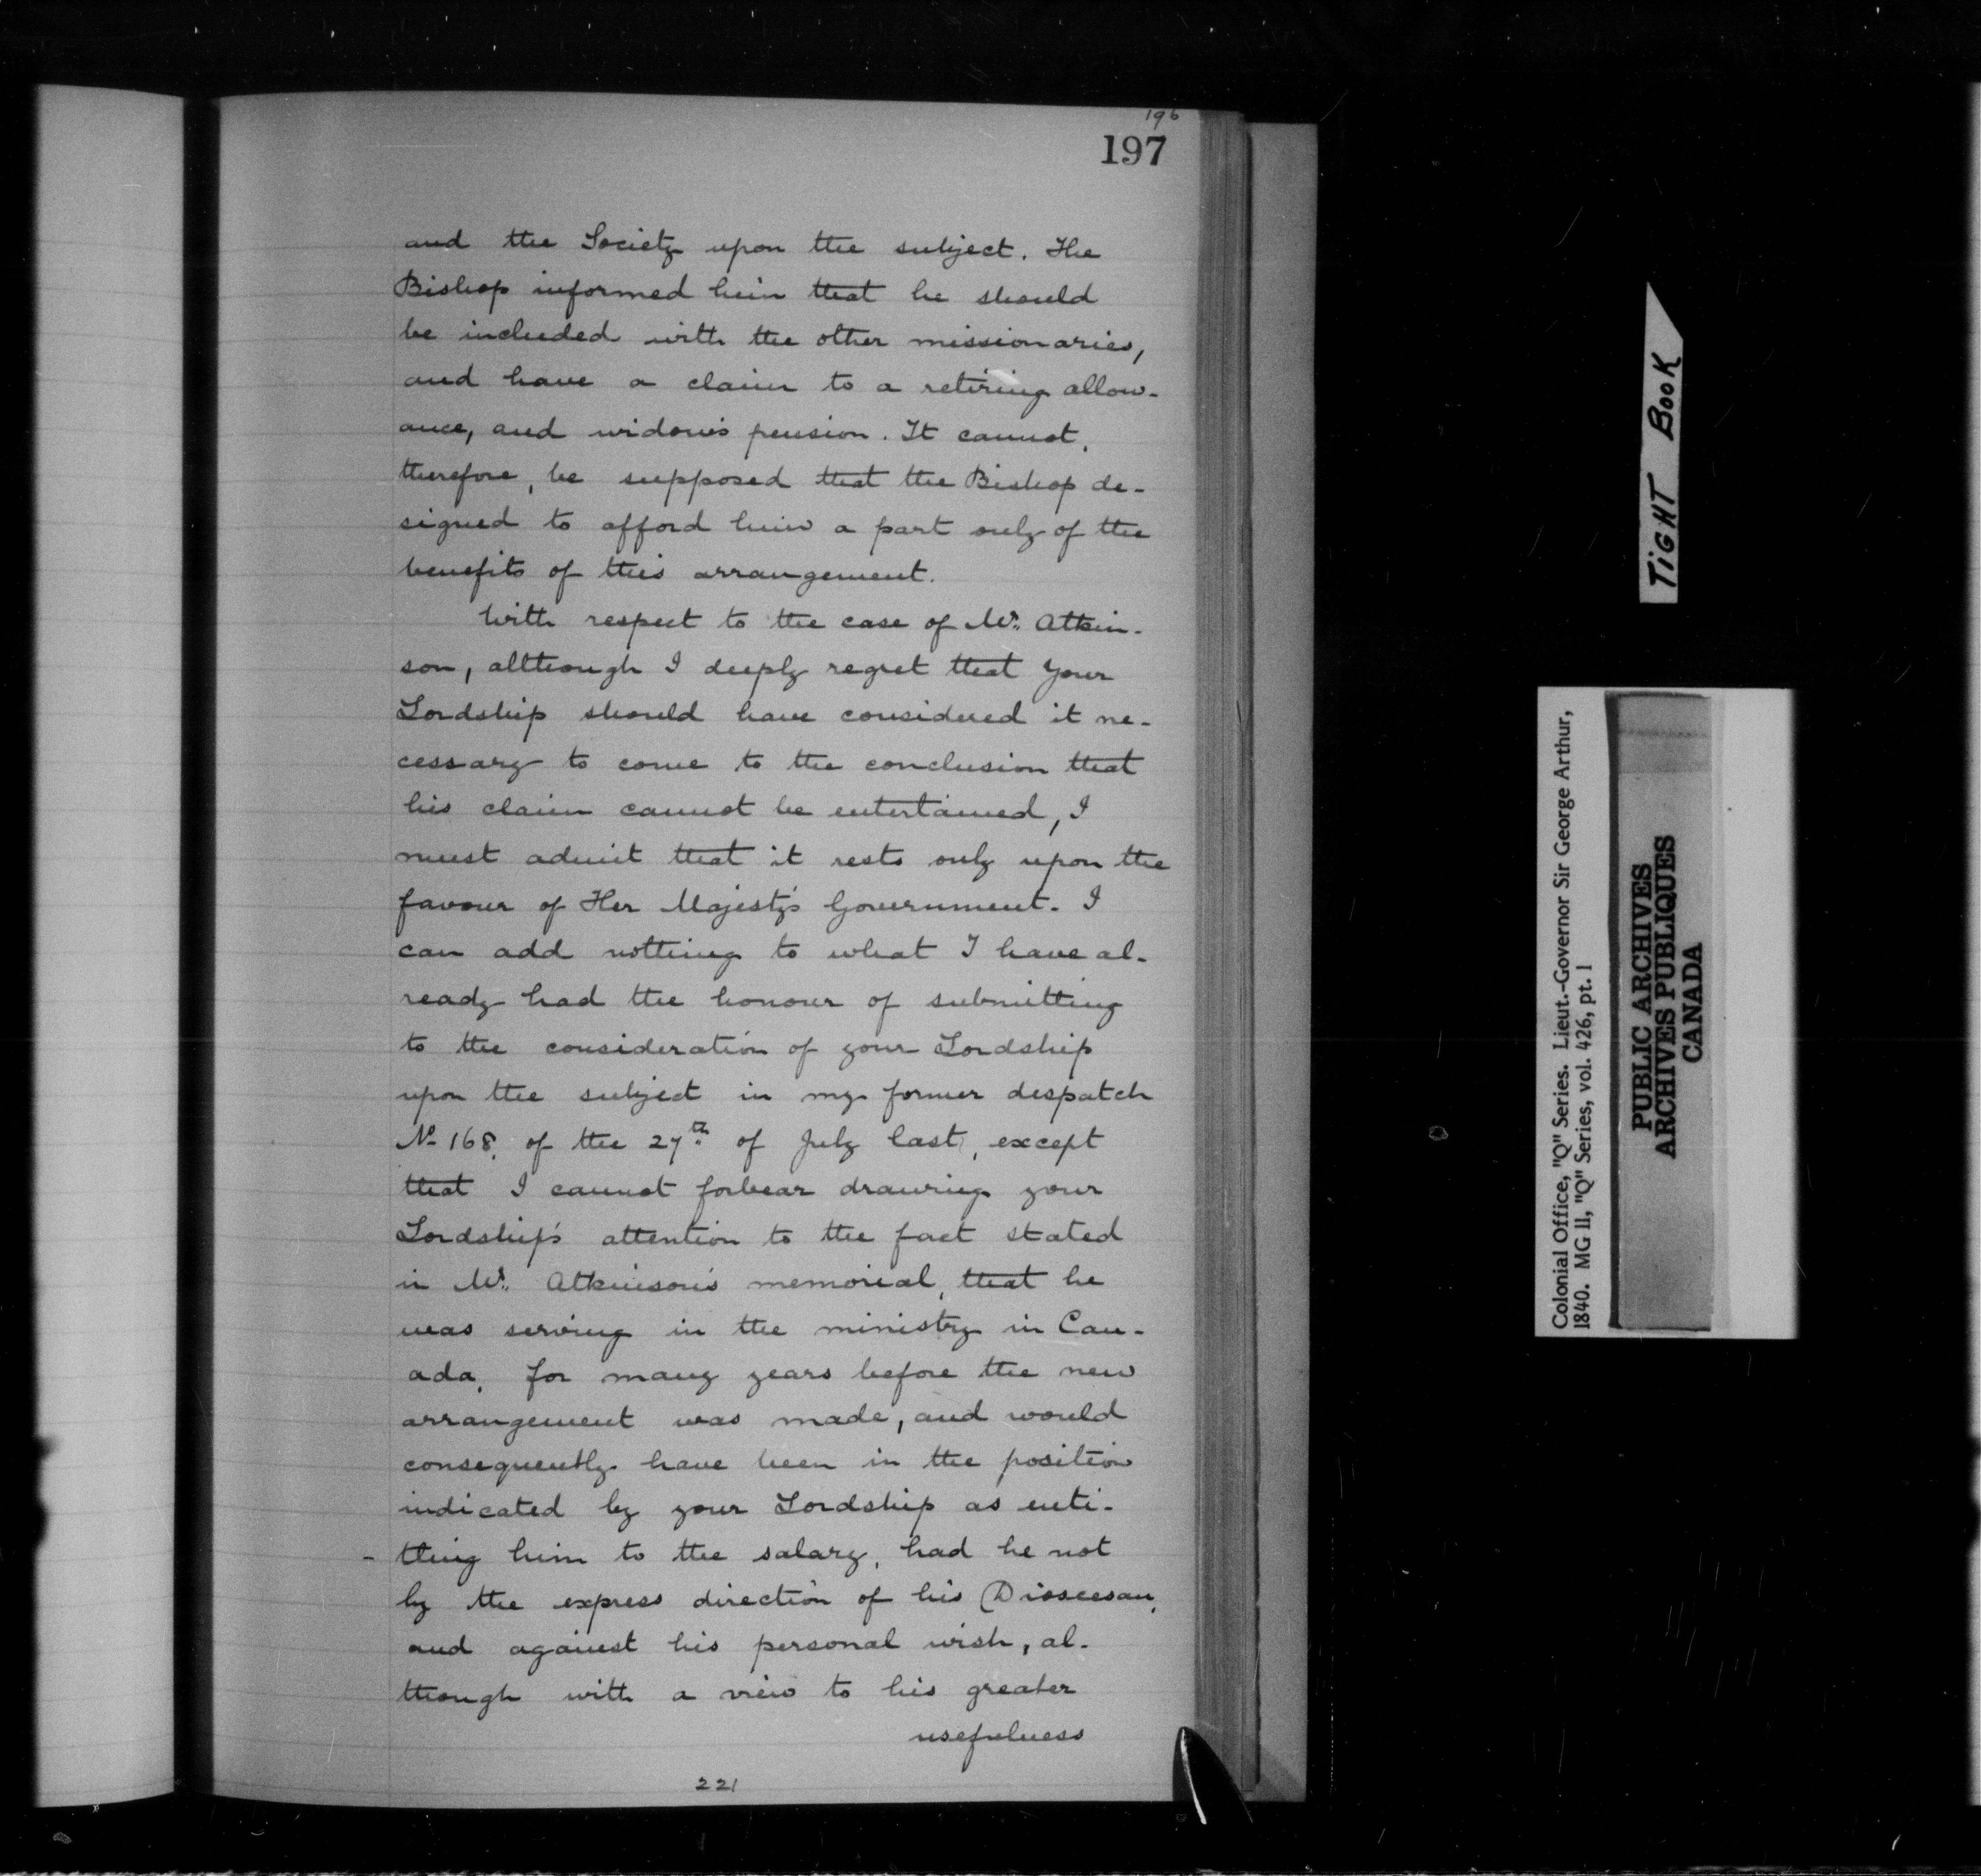 196
197
and the Society upon the subject. The
Bishop informed him that he should
be included with the other missionaries,
and have a claim to a retiring allow-
ance, and widow's pension. It cannot,
therefore, be supposed that the Bishop de-
signed to afford him a part only of the
benefits of this arrangement.
With respect to the case of Mr. Atkin-
son, although I deeply regret that your
Lordship should have considered it ne-
cessary to come to the conclusion that
his claim cannot be entertained, I
must admit that it rests only upon the
favour of Her Majesty's Government. I
can add nothing to what I have al-
ready had the honour of submitting
to the consideration of your Lordship
upon the subject in my former despatch
No 168, of the 27th of July last, except
that I cannot forbear drawing your
Lordship's attention to the fact stated
in Mr. Atkinson's memorial, that he
was serving in the ministry in Can-
ada, for many years before the new
arrangement was made, and would
consequently have been in the position
indicated by your Lordship as enti-
- tling him to the salary, had he not
by the express direction of his Dioscesan,
and against his personal wish, al-
though with a view to his greater
usefulness
221
TIGHT BOOK
Colonial Office, "Q" Series. Lieut.-Governor Sir George Arthur,
1840. MG 11, "Q" Series, vol. 426, pt. 1
PUBLIC ARCHIVES
ARCHIVES PUBLIQUES
CANADA